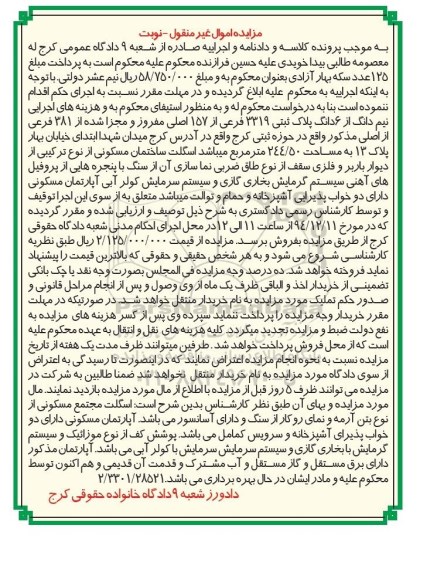 مزایده اموال غیر منقول -نوبت
به موجب پرونده کلاسه و دادنامه و اجراییه صادره از شعبه ۹ دادگاه عمومی کرج له
معصومه طالبی بیدا خویدی علیه حسین فرازنده محکوم علیه محکوم است به پرداخت مبلغ
۱۲۵عدد سکه بهار آزادی بعنوان محکوم به و مبلغ ۵۸/۷۵۰/۰۰۰ریال نیم عشر دولتی. با توجه
به اینکه اجراییه به محکوم علیه ابلاغ گردیده و در مهلت مقرر نسبت به اجرای حکم اقدام
ننموده است بنا به درخواست محکوم له و به منظور استیفای محکوم به و هزینه های اجرایی
نیم دانگ از ۶دانگ پلاک ثبتی ۳۳۱۹ فرعی از ۱۵۷ اصلی مفروز و مجزا شده از ۳۸۱ فرعی
از اصلی مذکور واقع در حوزه ثبتی کرج واقع در آدرس کرج میدان شهدا ابتدای خیابان بهار
پلاک ۱۳ به مساحت ۲۴۴/۵۰ مترمربع میباشد اسکلت ساختمان مسکونی از نوع ترکیبی از
دیوار باربر و فلزی سقف از نوع طاق ضربی نما سازی آن از سنگ با پنجره هایی از پروفیل
های آهنی سیستم گرمایش بخاری گازی و سیستم سرمایش کولر آبی آپارتمان مسکونی
دارای دو خواب پذیرایی آشپزخانه و حمام و توالت میباشد متعلق به از سوی این اجرا توقیف
و توسط کارشناس رسمی دادگستری به شرح ذیل توصیف و ارزیابی شده و مقرر گردیده
که در مورخ ۹۴/۱۲/۱۱ از ساعت ۱۱ الی ۱۲در محل اجرای احکام مدنی شعبه دادگاه حقوقی
کرج از طریق مزایده بفروش برسد. مزایده از قیمت ۲/۱۲۵/۰۰۰/۰۰۰ ریال طبق نظریه
کارشناسی شروع می شود و به هر شخص حقیقی و حقوقی که بالاترین قیمت را پیشنهاد
نماید فروخته خواهد شد. ده درصد وجه مزایده فی المجلس بصورت وجه نقد یا چک بانکی
تضمینی از خریدار اخذ و الباقی ظرف یک ماه از وی وصول و پس از انجام مراحل قانونی و
صدور حکم تملیک مورد مزایده به نام خریدار منتقل خواهد شد در صورتیکه در مهلت
مقرر خریدار وجه مزایده را پرداخت ننماید سپرده وی پس از کسر هزینه های مزایده به
نفع دولت ضبط و مزایده تجدید میگردد. کلیه هزینه های نقل و انتقال به عهده محکوم علیه
است که از محل فروش پرداخت خواهد شد. طرفین میتوانند ظرف مدت یک هفته از تاریخ
مزایده نسبت به نحوه انجام مزایده اعتراض نمایند که در اینصورت تا رسیدگی به اعتراض
از سوی دادگاه مورد مزایده به نام خریدار منتقل نخواهد شد ضمنا طالبین به شرکت در
مزایده می توانند ظرف ۵ روز قبل از مزایده با اطلاع از مال مورد مزایده بازدید نمایند. مال
مورد مزایده و بهای آن طبق نظر کارشناس بدین شرح است: اسکلت مجتمع مسکونی از
نوع بتن آرمه و نمای رو کار از سنگ و دارای آسانسور می باشد. آپارتمان مسکونی دارای دو
خواب پذیرای آشپزخانه و سرویس کامل می باشد. پوشش کف از نوع موزائیک و سیستم
گرمایش با بخاری گازی و سیستم سرمایش سرمایش با کولر آبی می باشد. آپارتمان مذکور
دارای برق مستقل و گاز مستقل و آب مشترک و قدمت آن قدیمی و هم اکنون توسط
محکوم علیه و مادر ایشان در حال بهره برداری می باشد.۲/۳۳۰۱/۲۸۵۲۱
دادورز شعبه ۹دادگاه خانواده حقوقی کرج